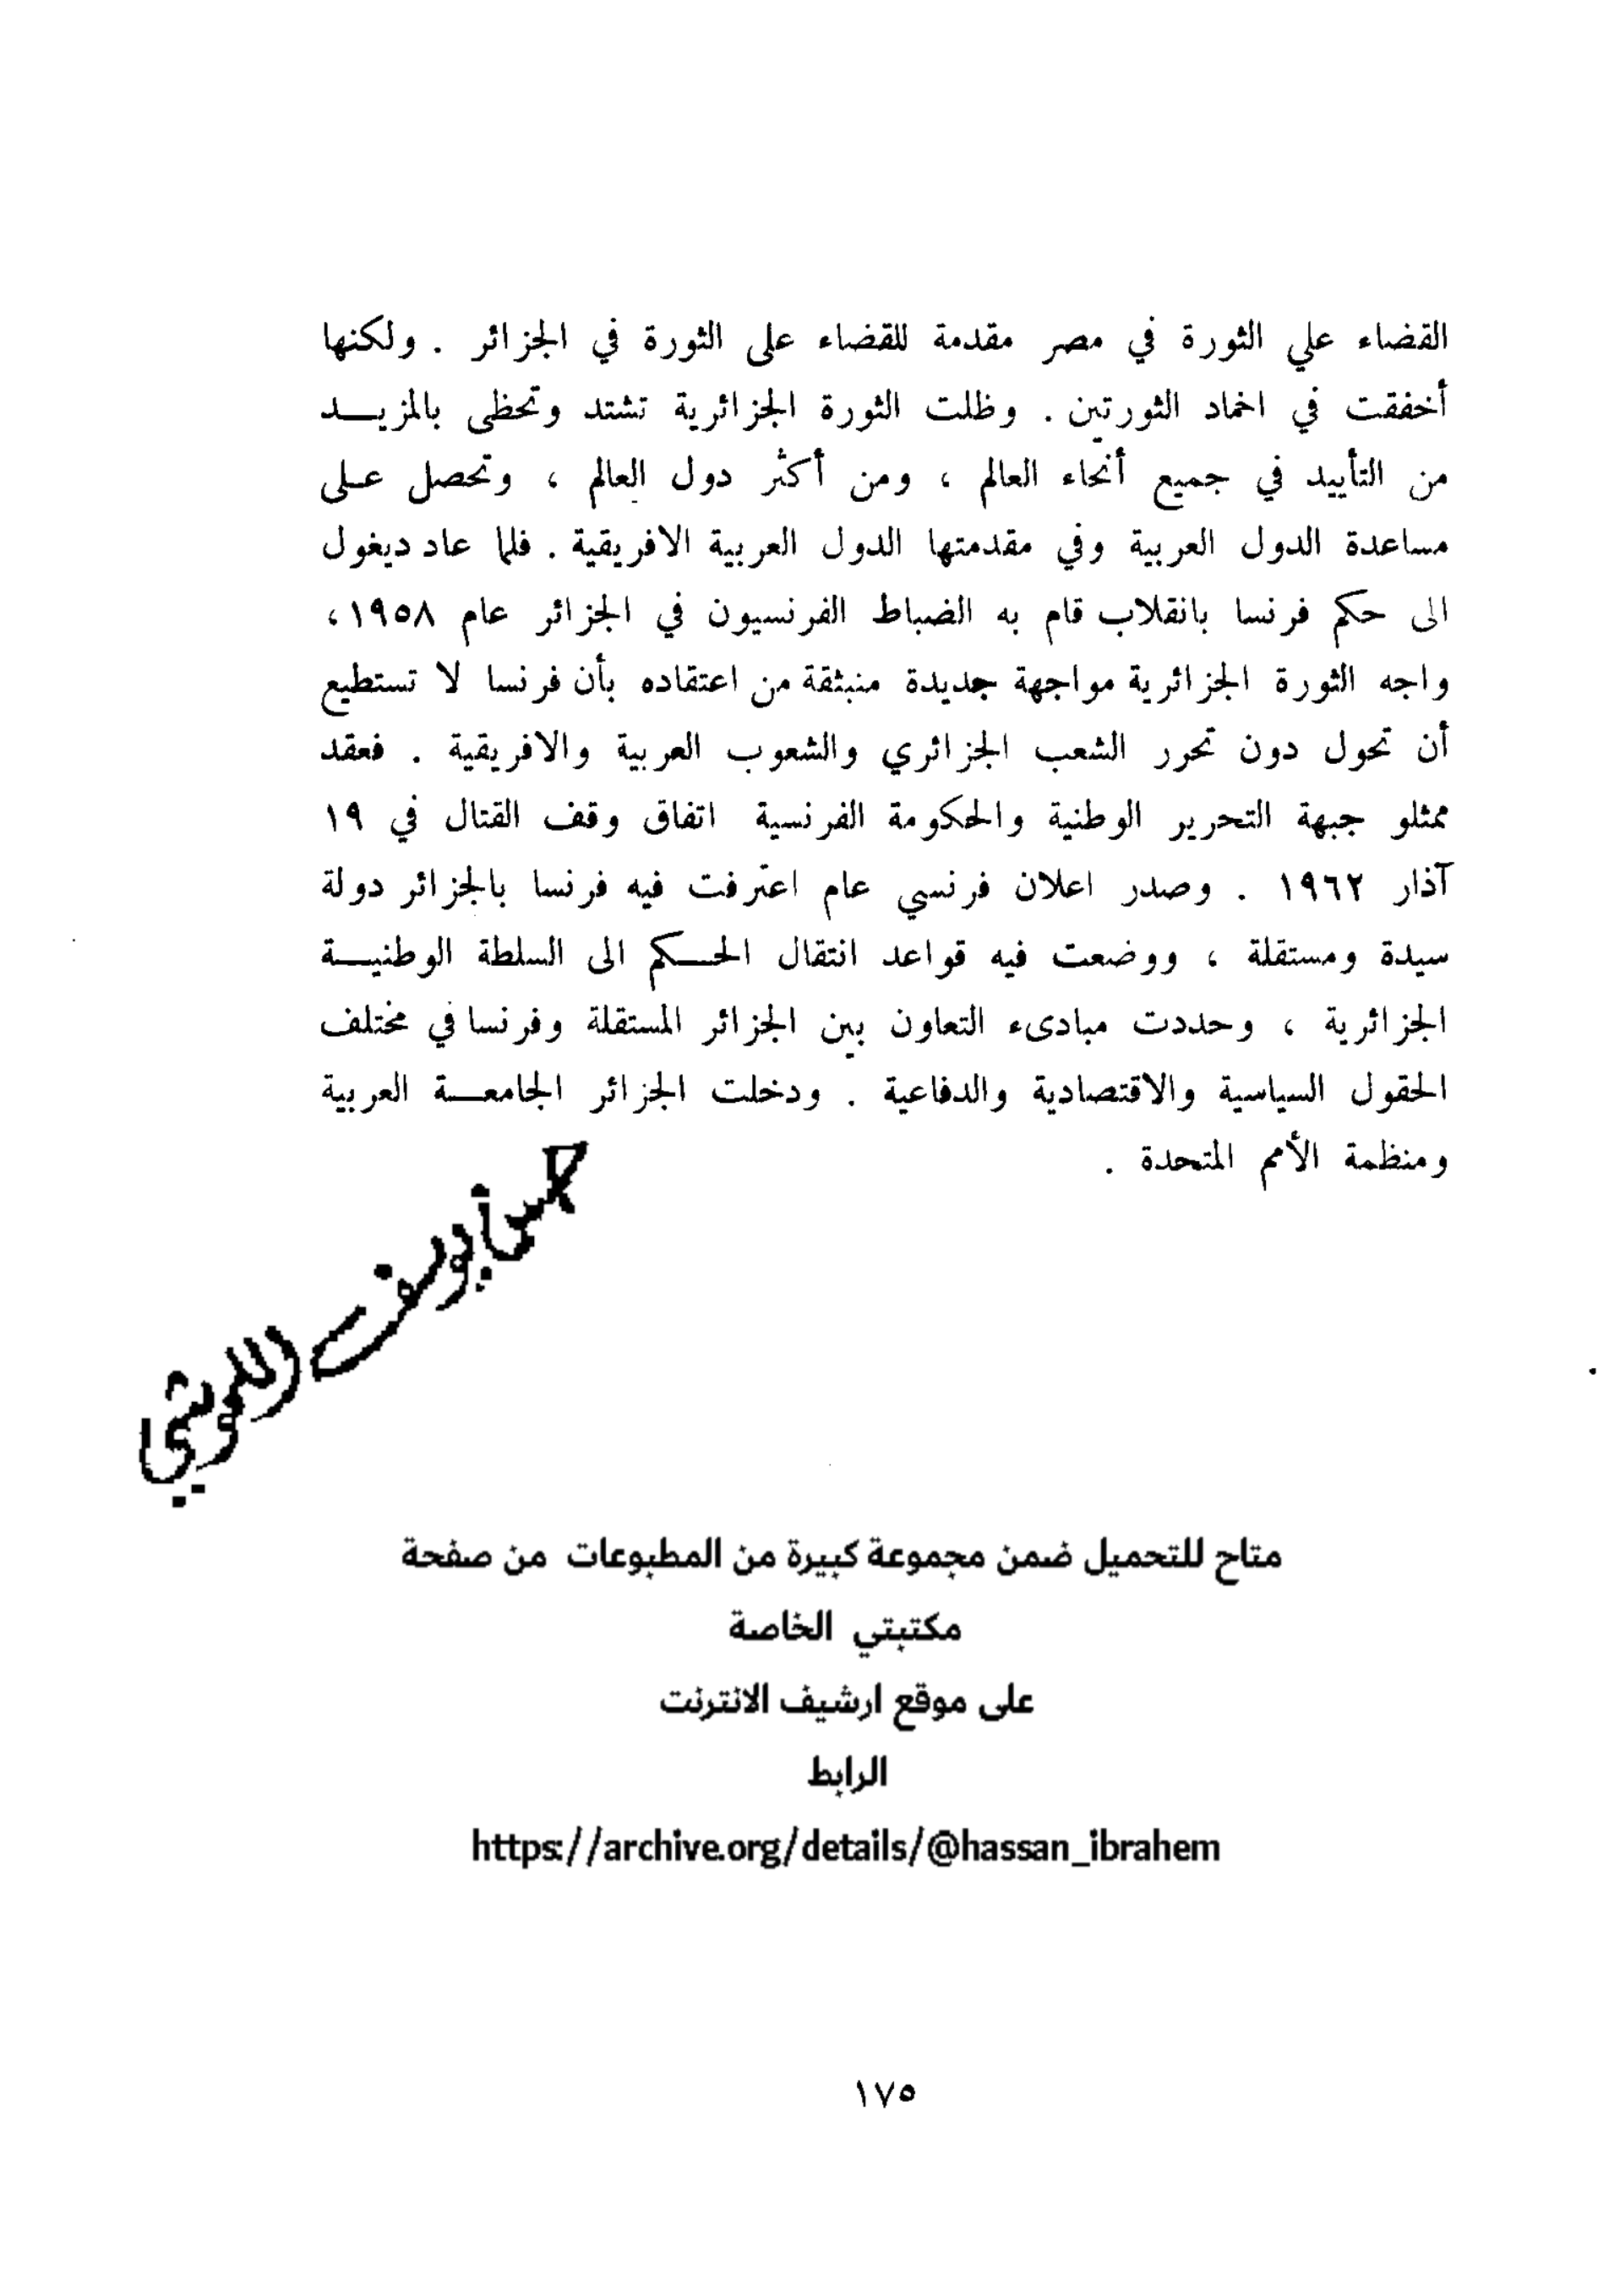 القضاء علي الثورة في مصر مقدمة للقضاء على الثورة في الجزائر . ولكنها
أخفقت في اخماد الثورتين . وظلت الثورة الجزائرية تشتد وتحظى بالمزيـــد
من التأييد في جميع أنحاء العالم ، ومن أكثر دول العالم ، وتحصل عـلى
مساعدة الدول العربية وفي مقدمتها الدول العربية الافريقية . فلما عاد ديغول
الى حكم فرنسا بانقلاب قام به الضباط الفرنسيون في الجزائر عام ١٩٥٨ ،
واجه الثورة الجزائرية مواجهة جديدة منبثقة من اعتقاده بأن فرنسا لا تستطيع
أن تحول دون تحرر الشعب الجزائري والشعوب العربية والافريقية . فعقد
ممثلو جبهة التحرير الوطنية والحكومة الفرنسية اتفاق وقف القتال في ١٩
آذار ١٩٦٢ . وصدر اعلان فرنسي عام اعترفت فيه فرنسا بالجزائر دولة
سيدة ومستقلة ، ووضعت فيه قواعد انتقال الحـــكم الى السلطة الوطنيـــة
الجزائرية ، وحددت مبادىء التعاون بين الجزائر المستقلة وفرنسا في مختلف
الحقول السياسية والاقتصادية والدفاعية . ودخلت الجزائر الجامعـــة العربية
ومنظمة الأمم المتحدة .
متاح للتحميل ضمن مجموعة كبيرة من المطبوعات من صفحة
مكتبتي الخاصة
على موقع ارشيف الانترنت
الرابط
https://archive.org/details/@hassan_ibrahem
١٧٥